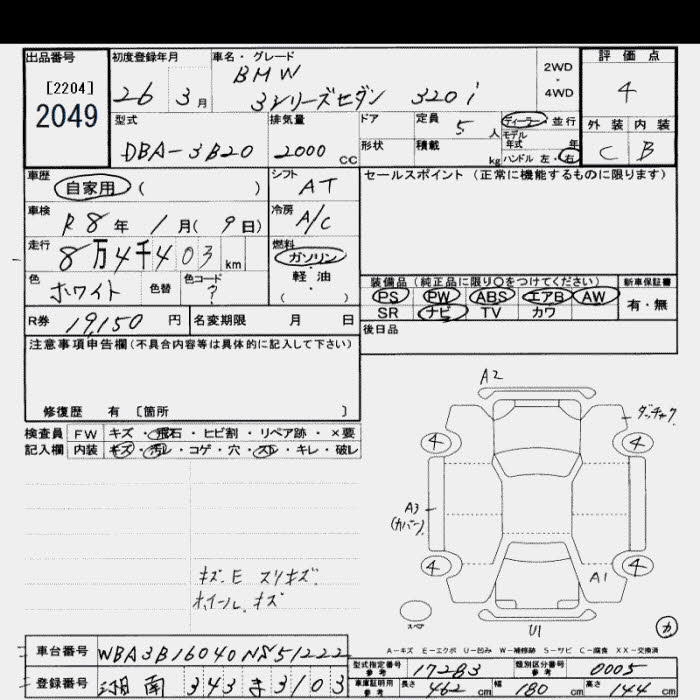 出品番号
[2204]
2049
初度登録年月
26 3月
車名・グレード
BMW
3シリーズセダン 320i
2WD
・
4WD
評価点
4
外装 内装
C B
型式
DBA-3B20
排気量
2000 CC
ドア
定員 5 人
ディーラー・並行
モデル年式 年
形状
積載 kg
ハンドル 左・右
車歴
自家用 ( )
シフト
AT
セールスポイント(正常に機能するものに限ります)
車検
R8年 1月(9日)
冷房
A/C
走行
8万4千403 km
燃料
ガソリン
・
軽油
( )
色
ホワイト
色替
色コード
?
装備品(純正品に限り○をつけてください)
PS PW ABS エアB AW
SR ナビ TV カワ
新車保証書
有・無
R券 19,150 円
名変期限 月 日
後日品
注意事項申告欄(不具合内容等は具体的に記入して下さい)
修復歴 有 〔箇所 〕
検査員 FW キズ・飛石・ヒビ割・リペア跡・×要
記入欄 内装 キズ・汚レ・コゲ・穴・スレ・キレ・破レ
A2
ダッチャク
4 4
A3
(カバー)
4 4
A1
キズ.E スリキズ.
ホイール.キズ
スペア
U1
カ
A-キズ E-エクボ U-凹み W-補修跡 S-サビ C-腐食 XX-交換済
車台番号 WBA3B16040NS51222
型式指定番号 参考 17283
類別区分番号 参考 0005
登録番号 湘南 343 ま 3103
車庫証明用 参考
長さ 462 cm
幅 180 cm
高さ 144 cm